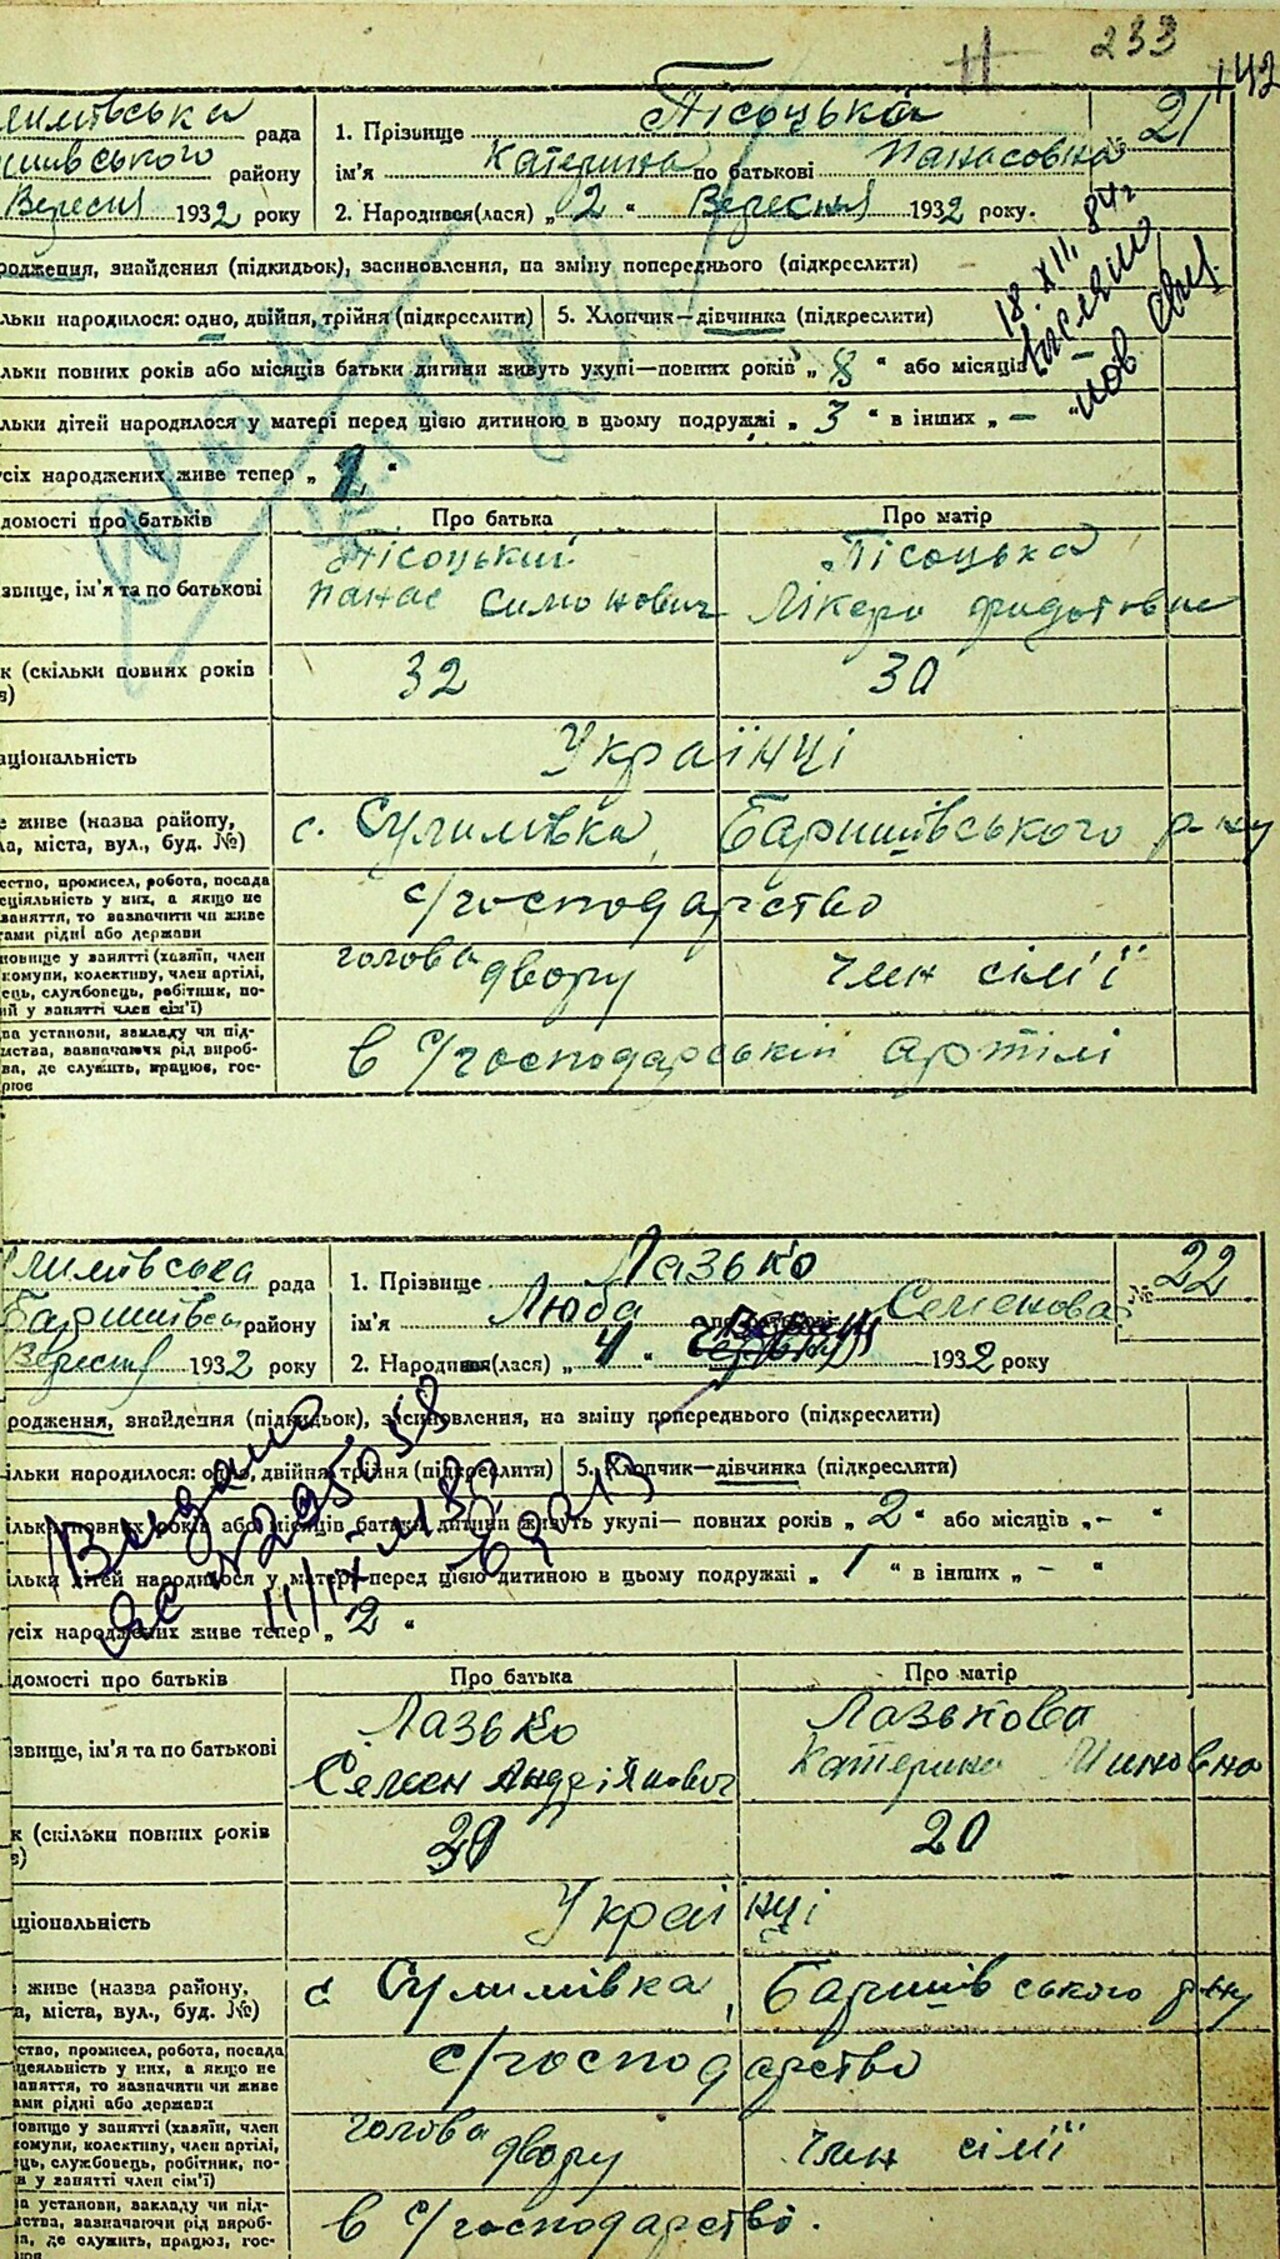 233
142
лимівська рада
шівського району
Вересня 1932 року
1. Прізвище Пісоцька
№ 21
ім'я Катерина по батькові Панасовна
2. Народився(лася) „ 2 “ Вересня 1932 року.
18.XII.84г
нов
родження, знайдення (підкидьок), засиновлення, на зміну попереднього (підкреслити)
льки народилося: одно, двійня, трійня (підкреслити) 5. Хлопчик—дівчинка (підкреслити)
льки повних років або місяців батьки дитини живуть укупі—повних років „ 8 “ або місяців „ —
льки дітей народилося у матері перед цією дитиною в цьому подружжі „ 3 “ в інших „ — “
сіх народжених живе тепер „ 2 “
домості про батьків Про батька Про матір
звище, ім'я та по батькові
Пісоцький Панас Симонович
Пісоцька Лікера
к (скільки повних років
в)
32 30
аціональність Українці
е живе (назва району,
ла, міста, вул., буд. №)
с. Сулимівка, Баришівського р-ну
ество, промисел, робота, посада
еціяльність у них, а якщо не
заняття, то зазначити чи живе
тами рідні або держави
с/господарство
новище у занятті (хазяїн, член
комуни, колективу, член артілі,
ець, службовець, робітник, по-
ий у занятті член сім'ї)
голова двору член сім'ї
ва установи, закладу чи під-
мства, зазначаючи рід вироб-
ва, де служить, працює, гос-
рює
в с/господарській артілі
лимівська рада
Баришівськ району
Вересня 1932 року
1. Прізвище Лазько
№ 22
ім'я Люба по батькові Семенова
2. Народився(лася) „ 4 “ 1932 року
родження, знайдення (підкидьок), засиновлення, на зміну попереднього (підкреслити)
ільки народилося: одно, двійня, трійня (підкреслити) 5. Хлопчик—дівчинка (підкреслити)
ільки повних років або місяців батьки дитини живуть укупі— повних років „ 2 “ або місяців „ — “
ільки дітей народилося у матері перед цією дитиною в цьому подружжі „ 1 “ в інших „ — “
усіх народжених живе тепер „ 2 “
Видано
домості про батьків Про батька Про матір
ізвище, ім'я та по батькові
Лазько Семен Андріянович
Лазькова Катерина
к (скільки повних років
в)
20
аціональність Українці
живе (назва району,
а, міста, вул., буд. №)
с. Сулимівка, Баришівського р-ну
ство, промисел, робота, посада
цеяльність у них, а якщо не
заняття, то зазначити чи живе
ами рідні або держави
с/господарство
новище у занятті (хазяїн, член
комуни, колективу, член артілі,
ець, службовець, робітник, по-
й у занятті член сім'ї)
голова двору член сім'ї
ва установи, закладу чи під-
мства, зазначаючи рід вироб-
ва, де служить, працює, гос-
в с/господарстві.